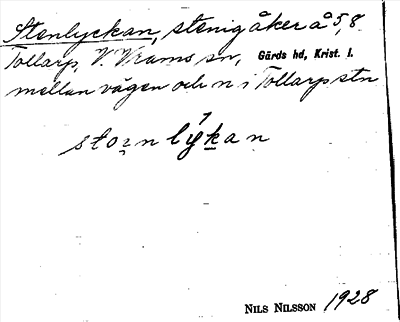 Stenlyckan, stenig åker å 5,8
Tollarp, V. Vrams sn, Gärds hd, Krist. l.
mellan vägen och n i Tollarp stn
stornlykan
NILS NILSSON 1928